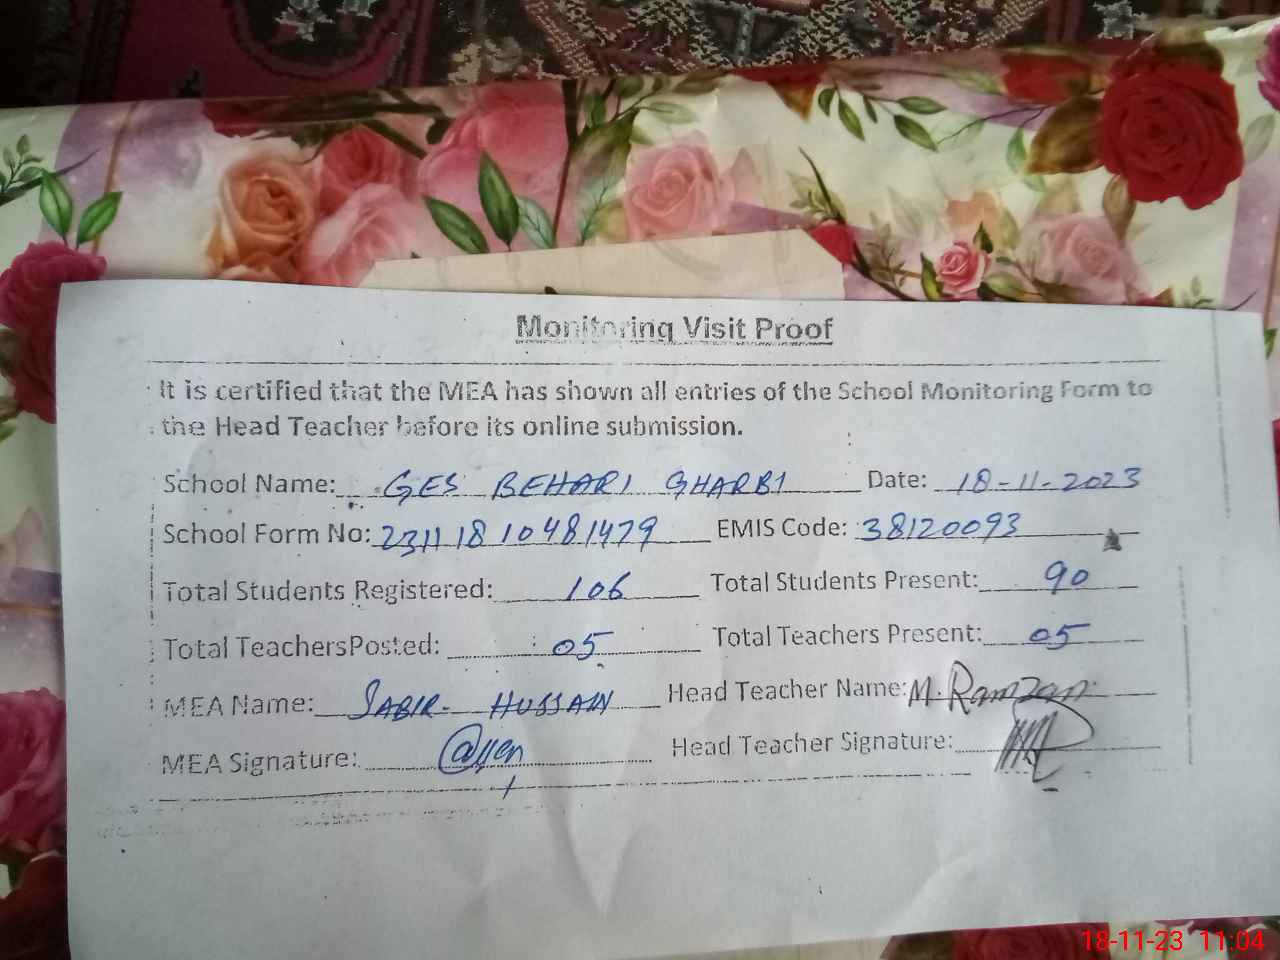 Monitoring Visit Proof
It is certified that the MEA has shown all entries of the School Monitoring Form to
the Head Teacher before its online submission.
School Name: GES BEHARI GHARBI Date: 18-11-2023
School Form No: 231118 10481479 EMIS Code: 38120093
Total Students Registered: 106 Total Students Present: 90
Total TeachersPosted: 05 Total Teachers Present: 05
MEA Name: SABIR HUSSAIN Head Teacher Name: M. Ramzan
MEA Signature: Head Teacher Signature:
18-11-23 11:04